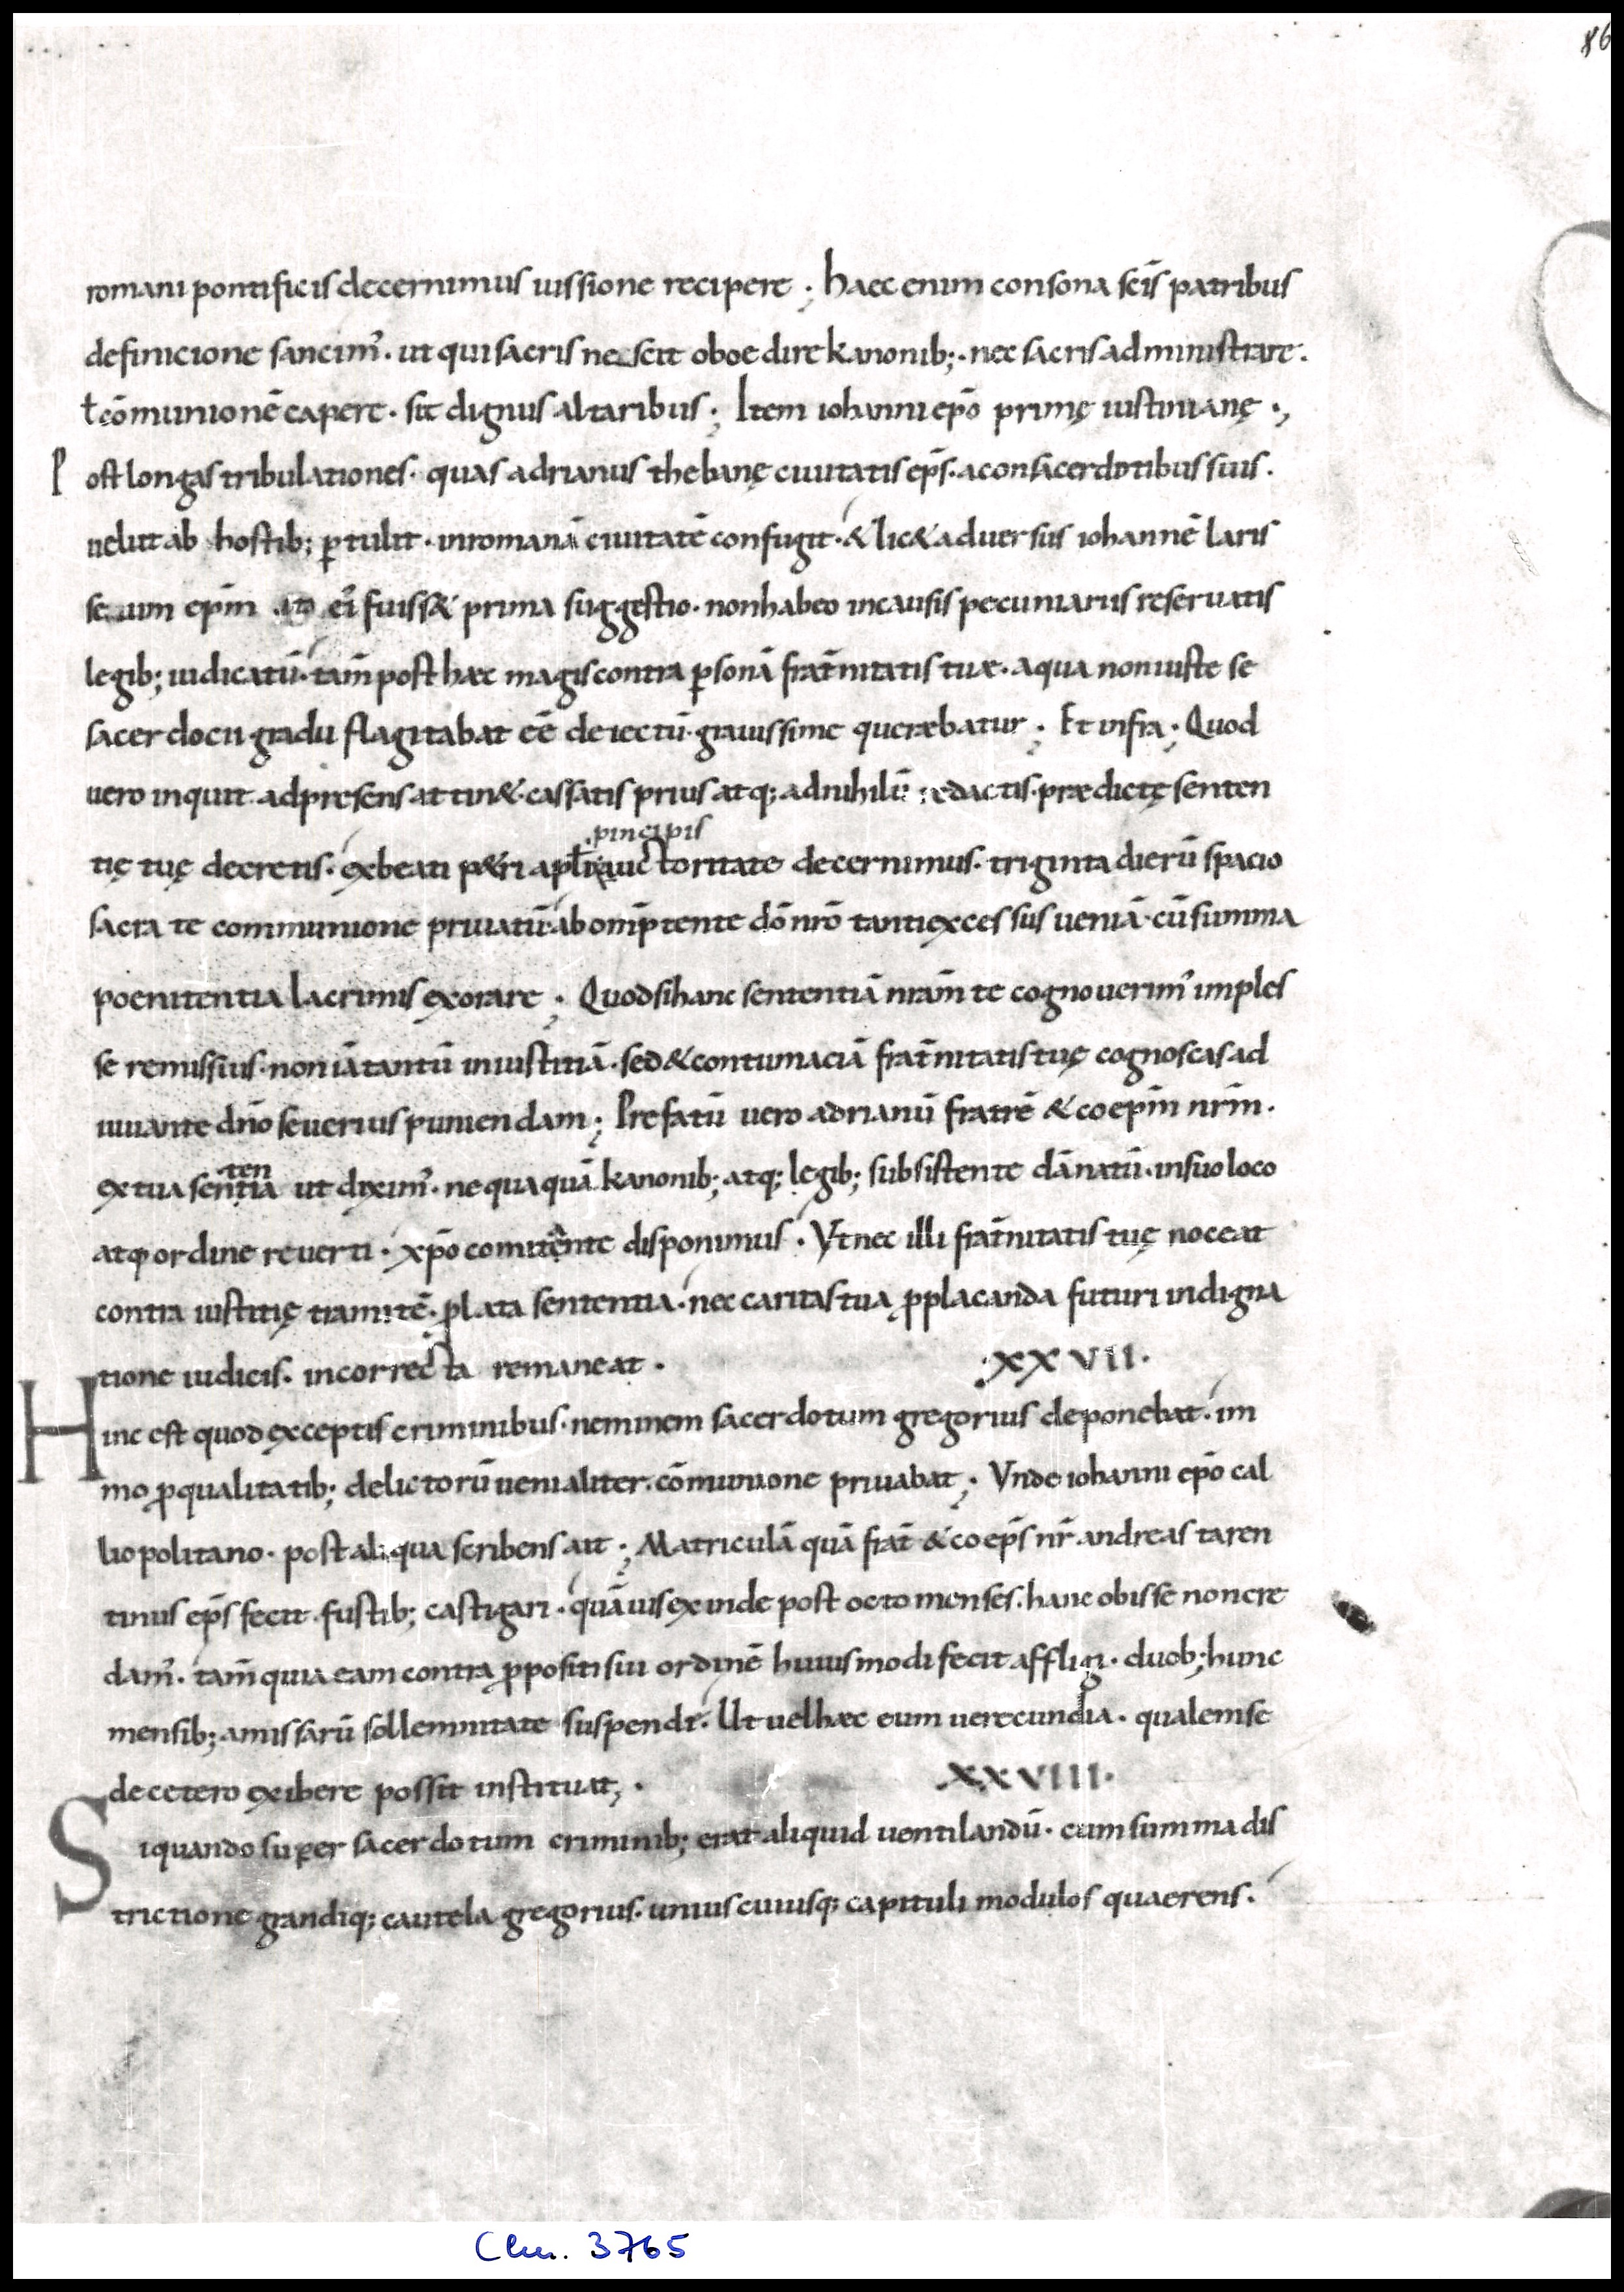 86
romani pontificis decernimus iussione recipere ; haec enim consona sc̄is patribus
definicione sancim᾽ · ut qui sacris nescit oboedire kanonib; · nec sacris administrare ·
ł cōmunionē capere · sit dignus altaribus ; Item iohanni ep̄o primę iustinianę ·,
Post longas tribulationes · quas adrianus thebanę ciuitatis ep̄s · a consacerdotibus suis ·
uelut ab hostib; ꝑtulit · in romanā ciuitatē confugit · & lic& aduersus iohannē laris
seum ep̄m ei᾽ fuiss& prima suggestio · non habeo in causis pecuniariis reseruatis
legib; iudicatū · tam̄ post haec magis contra ꝑsonā frat̄nitatis tuæ · a qua non iuste se
sacerdocii gradu flagitabat eē deiectū · grauissime queræbatur ; Et infra ; Quod
uero inquit ad presens attin& · cassatis prius atq; ad nihilū redactis · prædictę senten
tię tuę decretis · ex beati p&ri apl̄i auctoritate decernimus · triginta dierū spacio
principis
sacra te communione priuatū · ab omīp̄tente dō nr̄o tanti excessus ueniā · cū summa
poenitentia lacrimis exorare ; Quod si hanc sententiā nrām te cognouerim᾽ imples
se remissius · non iā tantū iniustitiā · sed & contumaciā frat̄nitatis tuę cognoscas ad
iuuante dn̄o seuerius puniendam ; Prefatū uero adrianū fratrē & coep̄m nrm̄ ·
ex tua sentia ut dixim᾽ · nequaquā kanonib; atq; legib; subsistente dānatū · in suo loco
ten
atq; ordine reuerti · xp̄o comitente disponimus · Vt nec illi frat̄nitatis tuę noceat
contra iustitię tramitē · ꝓlata sententia · nec caritas tua ꝓ placanda futuri indigna
tione iudicis · incorrecta remaneat · ·XXVII·
Hinc est quod exceptis criminibus · neminem sacerdotum gregorius deponebat · im
mo ꝓ qualitatib; delictorū uenialiter · cōmunione priuabat ; Vnde iohanni ep̄o cal
liopolitano · post aliqua scribens ait ; Matriculā quā frat̄ & coep̄s nr̄ andreas taren
tinus ep̄s fecit · fustib; castigari · quāuis exinde post octo menses · hanc obisse non cre
dam᾽ · tam̄ quia eam contra ꝓpositi sui ordinē huiusmodi fecit affligi · duob; hunc
mensib; a missarū sollemnitate suspende · Ut uel haec eum uerecundia · qualem se
de cetero exibere possit instituat ; · ·XXVIII·
Si quando super sacerdotum criminib; erat aliquid uentilandū · cum summa dis
trictione grandiq; cautela gregorius · unius cuiusq; capituli modulos quaerens ·
Clm. 3765